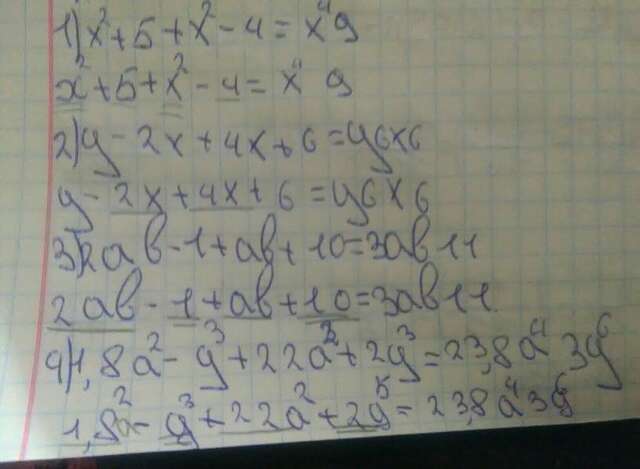 1) x² + 5 + x² - 4 = x⁴ 9
x² + 5 + x² - 4 = x⁴ 9
2) y - 2x + 4x + 6 = y6x6
y - 2x + 4x + 6 = y6x6
3) 2ab - 1 + ab + 10 = 3ab 11
2ab - 1 + ab + 10 = 3ab 11
4) 1,8a² - y³ + 22a² + 2y³ = 23,8a⁴ 3y⁶
1,8a² - y³ + 22a² + 2y³ = 23,8a⁴ 3y⁶